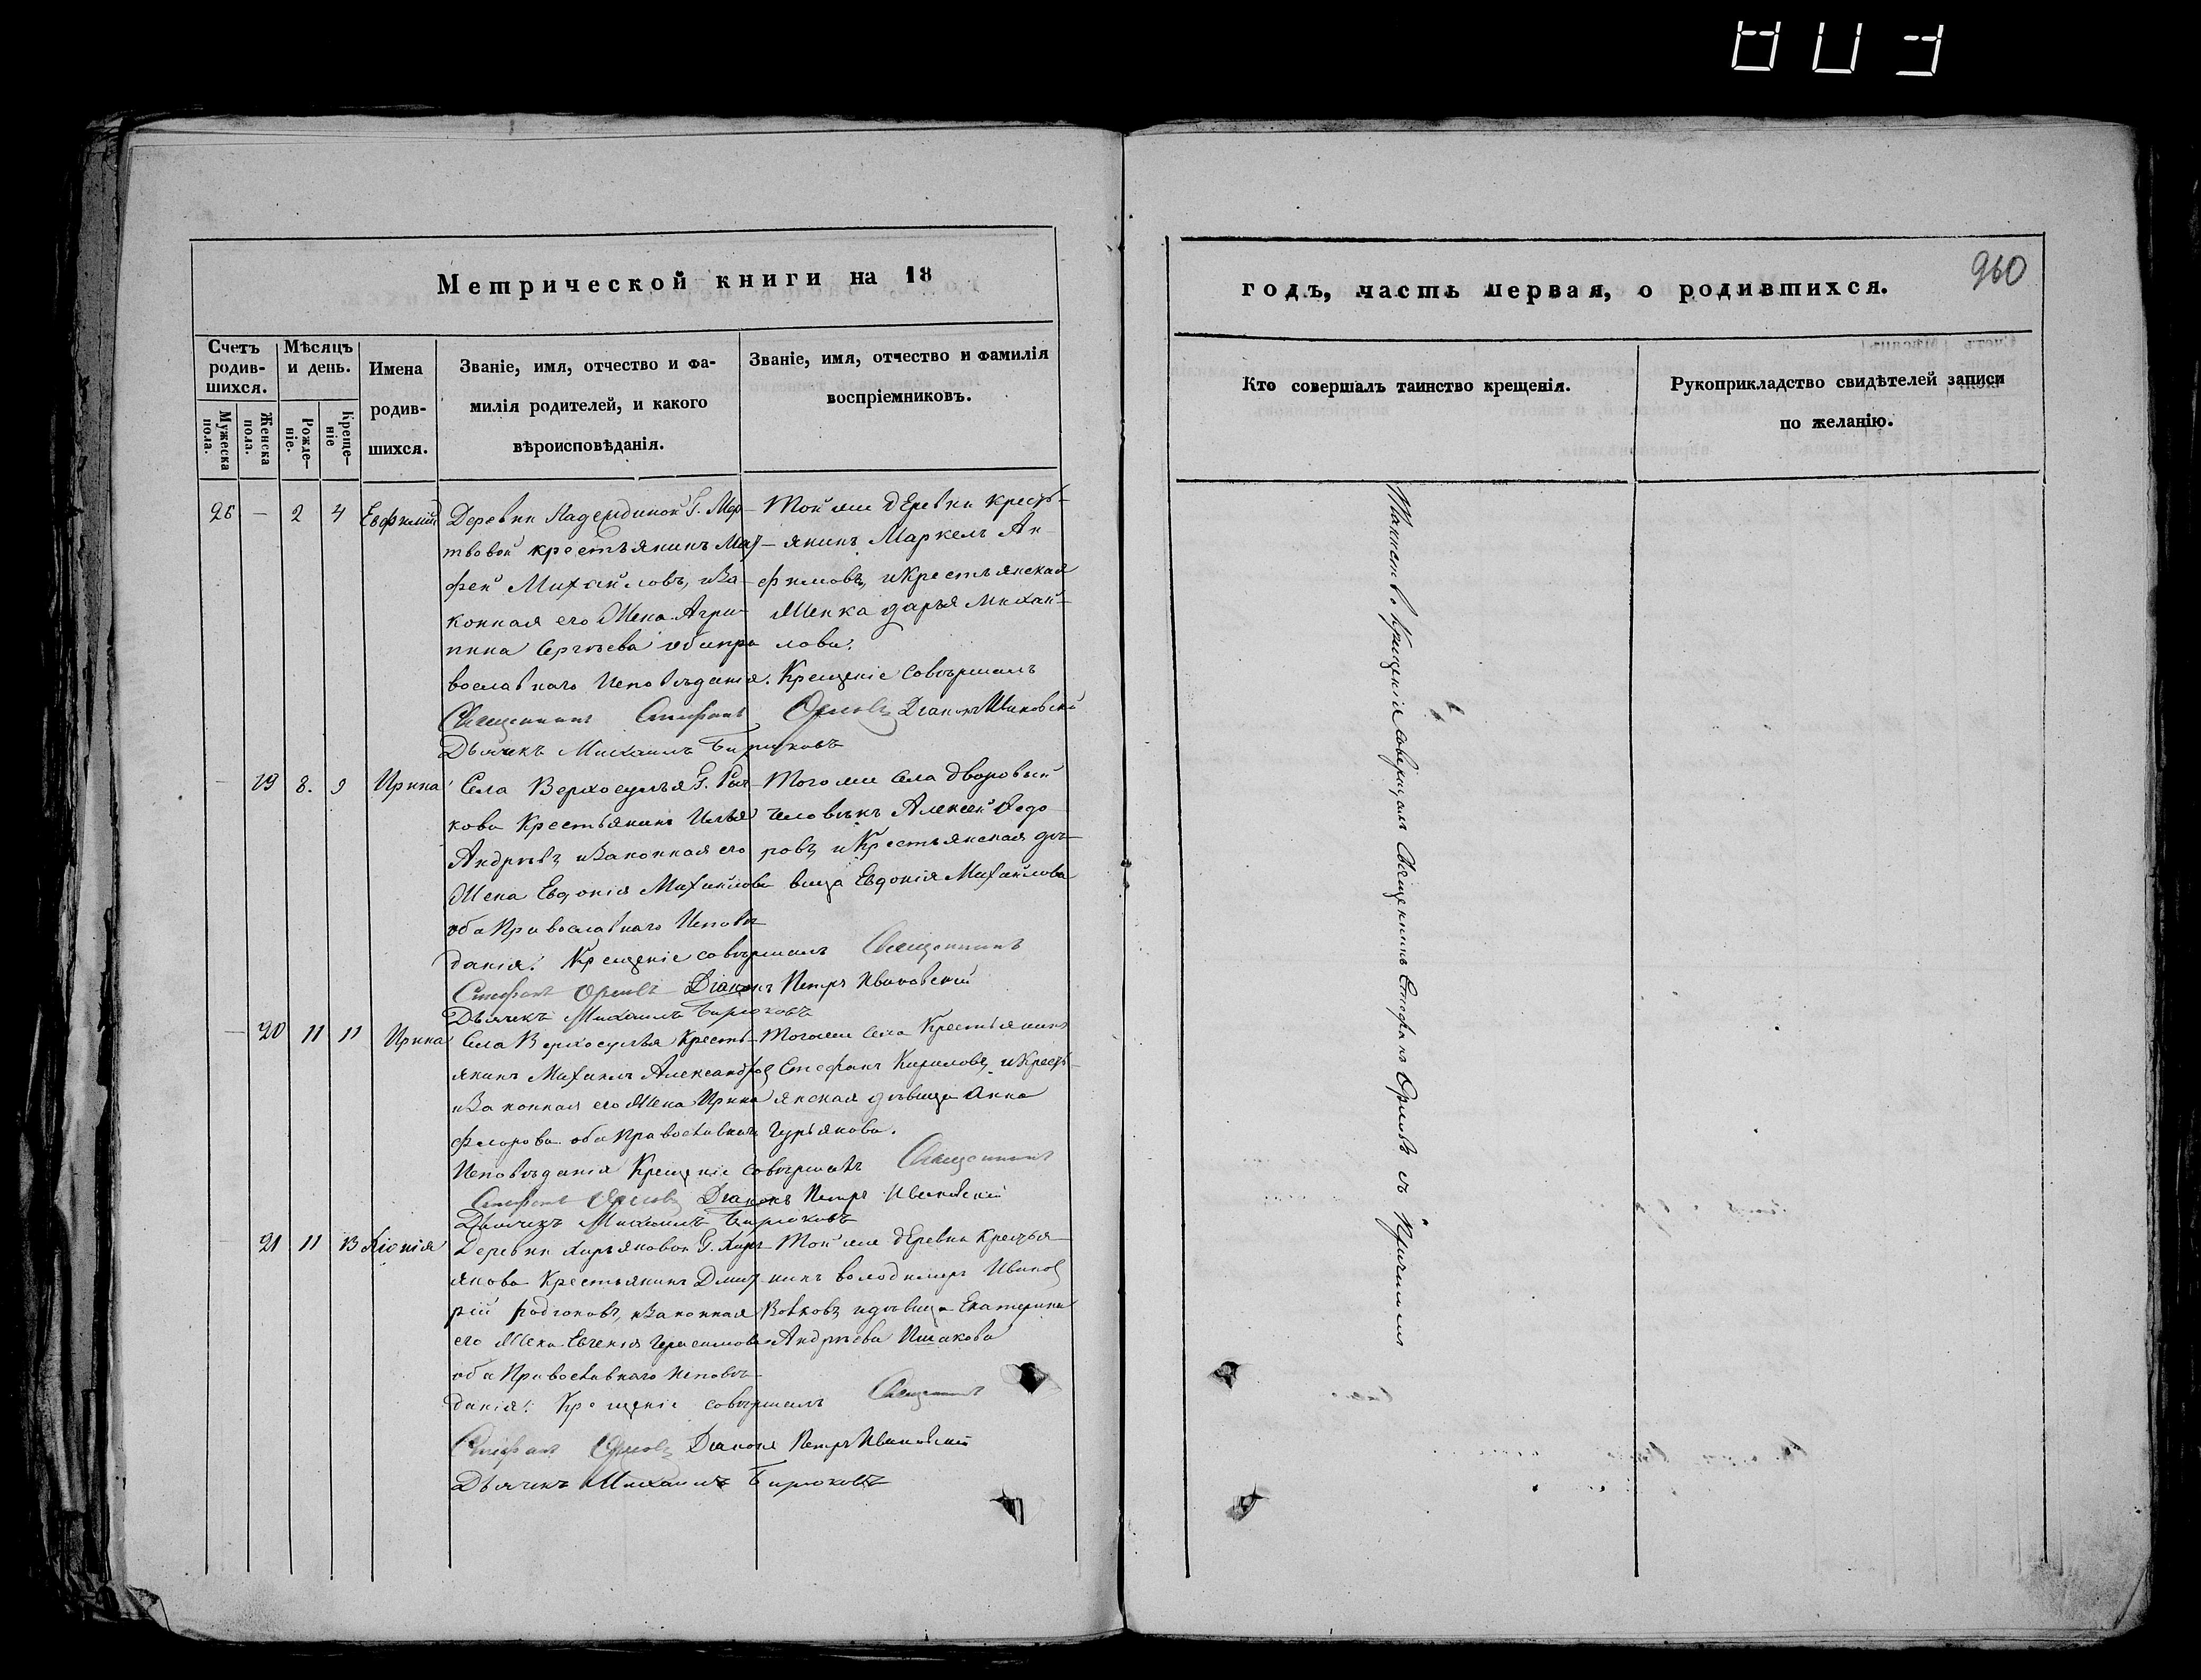 Метрической книги на 18
Счетъ родив-шихся.
Мужеска пола.
Женска пола.
Мѣсяцъ и день.
Рожде-ніе.
Креще-ніе
Имена родив-шихся.
Званіе, имя, отчество и фа-
милія родителей, и какого
вѣроисповѣданія.
Званіе, имя, отчество и фамилія
воспріемниковъ.
26 — 2 4 Евфимій Деревни
твовой крестьянинъ Мат-
фей Михайловъ, иЗа-
конная его Жена Агри-
пина Сергѣева оба пра
вославнаго Исповѣданія. Крещеніе совѣршалъ
Священникъ Стефанъ Орловъ Діаконъ Ивановскій
Дьячекъ Михаилъ Бирюковъ
Той же дЕревни кресть-
янинъ Маркелъ Ан-
фимовъ, иКрестьянская
Женка дарья михай-
лова.
— 19 8. 9 Ирина Села Верхосулья Г.
кова Крестьянинъ Илья
Андрѣевъ иЗаконная его
Жена Евдокія Михайлова
оба Православнаго Исповѣ-
данія. Крещеніе совѣршалъ Священникъ
Стефанъ Орловъ Діаконъ Петръ Ивановскій
Дьячекъ Михаилъ Бирюковъ
Того же села дворовый
человѣкъ Алексей Федо
ровъ иКрестьянская дѣ-
вица Евдокія Михайлова
— 20 11 11 Ирина Села Верхосулья Кресть-
янинъ Михаилъ Александровъ
иЗаконная его Жена Ирина
Флорова оба Православнаго
Исповѣданія Крещеніе совѣршалъ Священникъ
Стефанъ Орловъ Діаконъ Петръ Ивановскій
Дьячекъ Михаилъ Бирюковъ
Тогоже села Крестьянинъ
Стефанъ Кириловъ иКресть-
янская дѣвица Анна
Гурьянова.
21 11 13 Хіонія Деревни Хирьяковой Г. Хирь-
якова Крестьянинъ Дмит
рій родіоновъ, иЗаконная
его Жена Евгенія Герасимова
оба Православнаго исповѣ-
данія. Крещеніе совѣршалъ Священникъ
Стефанъ Орловъ Діаконъ Петръ Ивановскій
Дьячекъ Михаилъ Бирюковъ
Той же дЕревни Крестья-
нинъ володимеръ Ивановъ
Волковъ идѣвица Екатерина
Андрѣева Ишакова
годъ, часть первая, о родившихся.
960
Кто совершалъ таинство крещенія.
Рукоприкладство свидѣтелей записи
по желанію.
Таинство Крещенія совершалъ Священникъ Стефанъ Орловъ съ Причтомъ